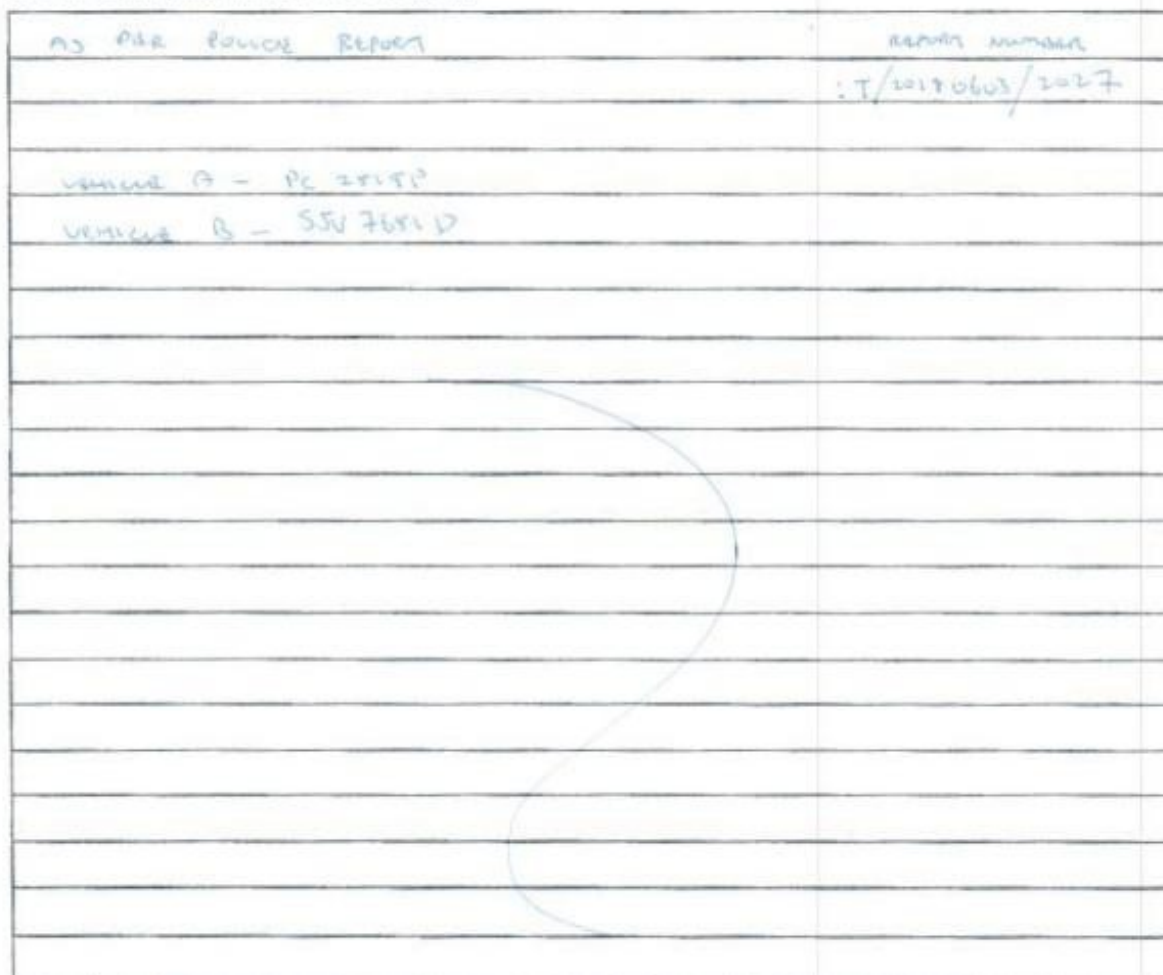 AS PER POLICE REPORT
REPORT NUMBER
: T/20180603/2027
VEHICLE A - PC
VEHICLE B -